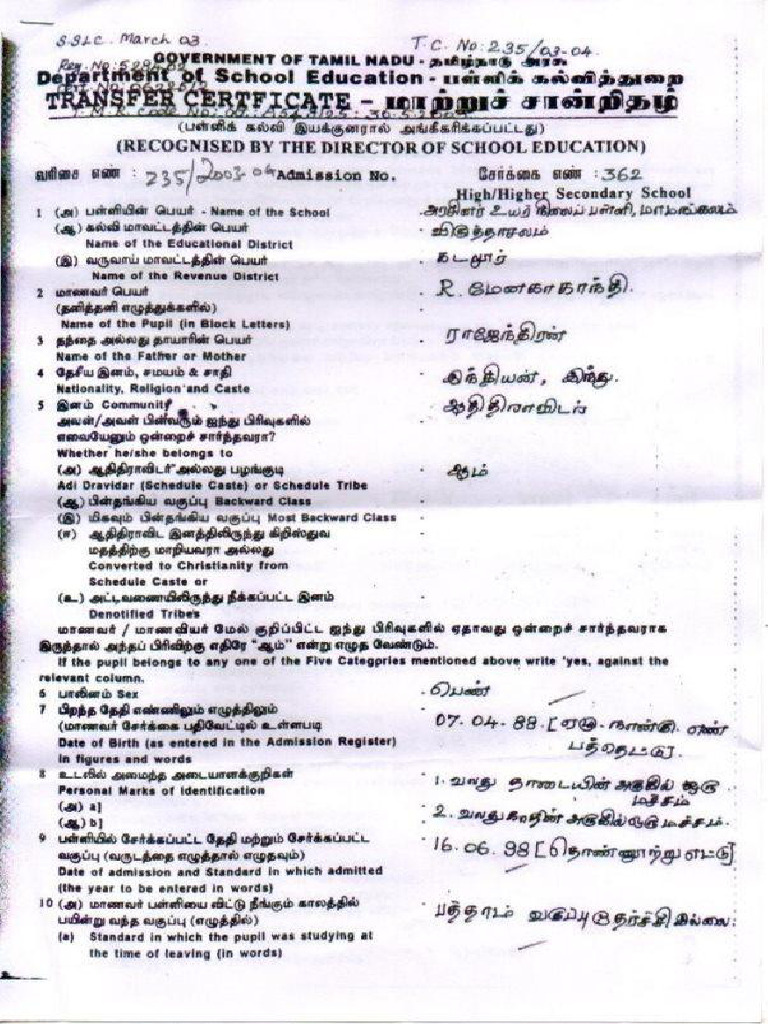 SSLC. March 03
T.C. No: 235/03-04.
GOVERNMENT OF TAMIL NADU - தமிழ்நாடு அரசு
Department of School Education - பள்ளிக் கல்வித்துறை
TRANSFER CERTFICATE - மாற்றுச் சான்றிதழ்
(பள்ளிக் கல்வி இயக்குனரால் அங்கீகரிக்கப்பட்டது)
(RECOGNISED BY THE DIRECTOR OF SCHOOL EDUCATION)
வரிசை எண் : 235/2003-04 Admission No. சேர்க்கை எண் : 362
High/Higher Secondary School
1 (அ) பள்ளியின் பெயர் - Name of the School - அரசினர் உயர் நிலைப் பள்ளி, மாமங்கலம்
(ஆ) கல்வி மாவட்டத்தின் பெயர் - விருத்தாசலம்
Name of the Educational District
(இ) வருவாய் மாவட்டத்தின் பெயர் - கடலூர்
Name of the Revenue District
2 மாணவர் பெயர் - R. மேனகாகாந்தி.
(தனித்தனி எழுத்துக்களில்)
Name of the Pupil (in Block Letters)
3 தந்தை அல்லது தாயாரின் பெயர் - ராஜேந்திரன்
Name of the Father or Mother
4 தேசிய இனம், சமயம் & சாதி - இந்தியன், இந்து.
Nationality, Religion and Caste
5 இனம் Community - ஆதிதிராவிடர்
அவன்/அவள் பின்வரும் ஐந்து பிரிவுகளில்
எவையேனும் ஒன்றைச் சார்ந்தவரா?
Whether he/she belongs to
(அ) ஆதிதிராவிடர் அல்லது பழங்குடி - ஆம்
Adi Dravidar (Schedule Caste) or Schedule Tribe
(ஆ) பின்தங்கிய வகுப்பு Backward Class -
(இ) மிகவும் பின்தங்கிய வகுப்பு Most Backward Class -
(ஈ) ஆதிதிராவிட இனத்திலிருந்து கிறிஸ்துவ -
மதத்திற்கு மாறியவரா அல்லது
Converted to Christianity from
Schedule Caste or
(உ) அட்டவணையிலிருந்து நீக்கப்பட்ட இனம் -
Denotified Tribes
மாணவர் / மாணவியர் மேல் குறிப்பிட்ட ஐந்து பிரிவுகளில் ஏதாவது ஒன்றைச் சார்ந்தவராக
இருந்தால் அந்தப் பிரிவிற்கு எதிரே "ஆம்" என்று எழுத வேண்டும்.
If the pupil belongs to any one of the Five Categpries mentioned above write 'yes, against the
relevant column.
6 பாலினம் Sex - பெண்
7 பிறந்த தேதி எண்ணிலும் எழுத்திலும் - 07.04.88. [ஏழு. நான்கு. எண்
(மாணவர் சேர்க்கை பதிவேட்டில் உள்ளபடி
Date of Birth (as entered in the Admission Register) பத்தெட்டு].
in figures and words
8 உடலில் அமைந்த அடையாளக்குறிகள் - 1. வலது தாடையின் அருகில் ஒரு
Personal Marks of Identification மச்சம்
(அ) a]
(ஆ) b] - 2. வலது காதின் அருகில் ஒரு மச்சம்.
9 பள்ளியில் சேர்க்கப்பட்ட தேதி மற்றும் சேர்க்கப்பட்ட - 16.06.98 [தொண்ணூற்று எட்டு]
வகுப்பு (வருடத்தை எழுத்தால் எழுதவும்)
Date of admission and Standard in which admitted
(the year to be entered in words)
10 (அ) மாணவர் பள்ளியை விட்டு நீங்கும் காலத்தில் - பத்தாம் வகுப்பு தேர்ச்சி இல்லை.
பயின்று வந்த வகுப்பு (எழுத்தில்)
(a) Standard in which the pupil was studying at
the time of leaving (in words)